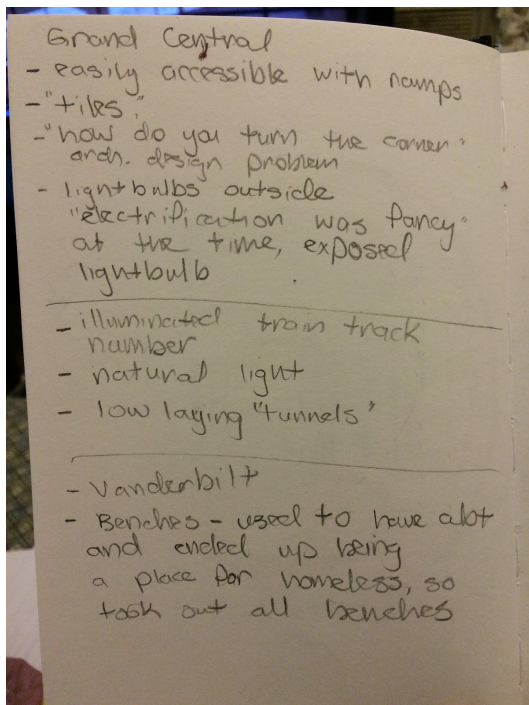 Grand Central
- easily accessible with ramps
- "tiles"
- "how do you turn the corner"
arch. design problem
- lightbulbs outside
"electrification was fancy"
at the time, exposed
lightbulb
- illuminated train track
number
- natural light
- low laying "tunnels"
- Vanderbilt
- Benches - used to have alot
and ended up being
a place for homeless, so
took out all benches